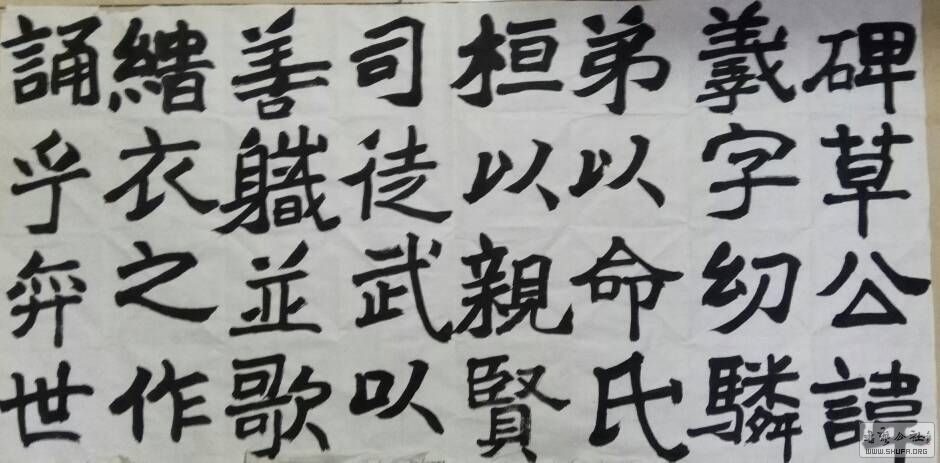 碑草公諱
羲字幼驎
弟以命氏
桓以親賢
司徒武以
善軄並歌
緇衣之作
誦乎弈世
WWW.SHUFA.ORG